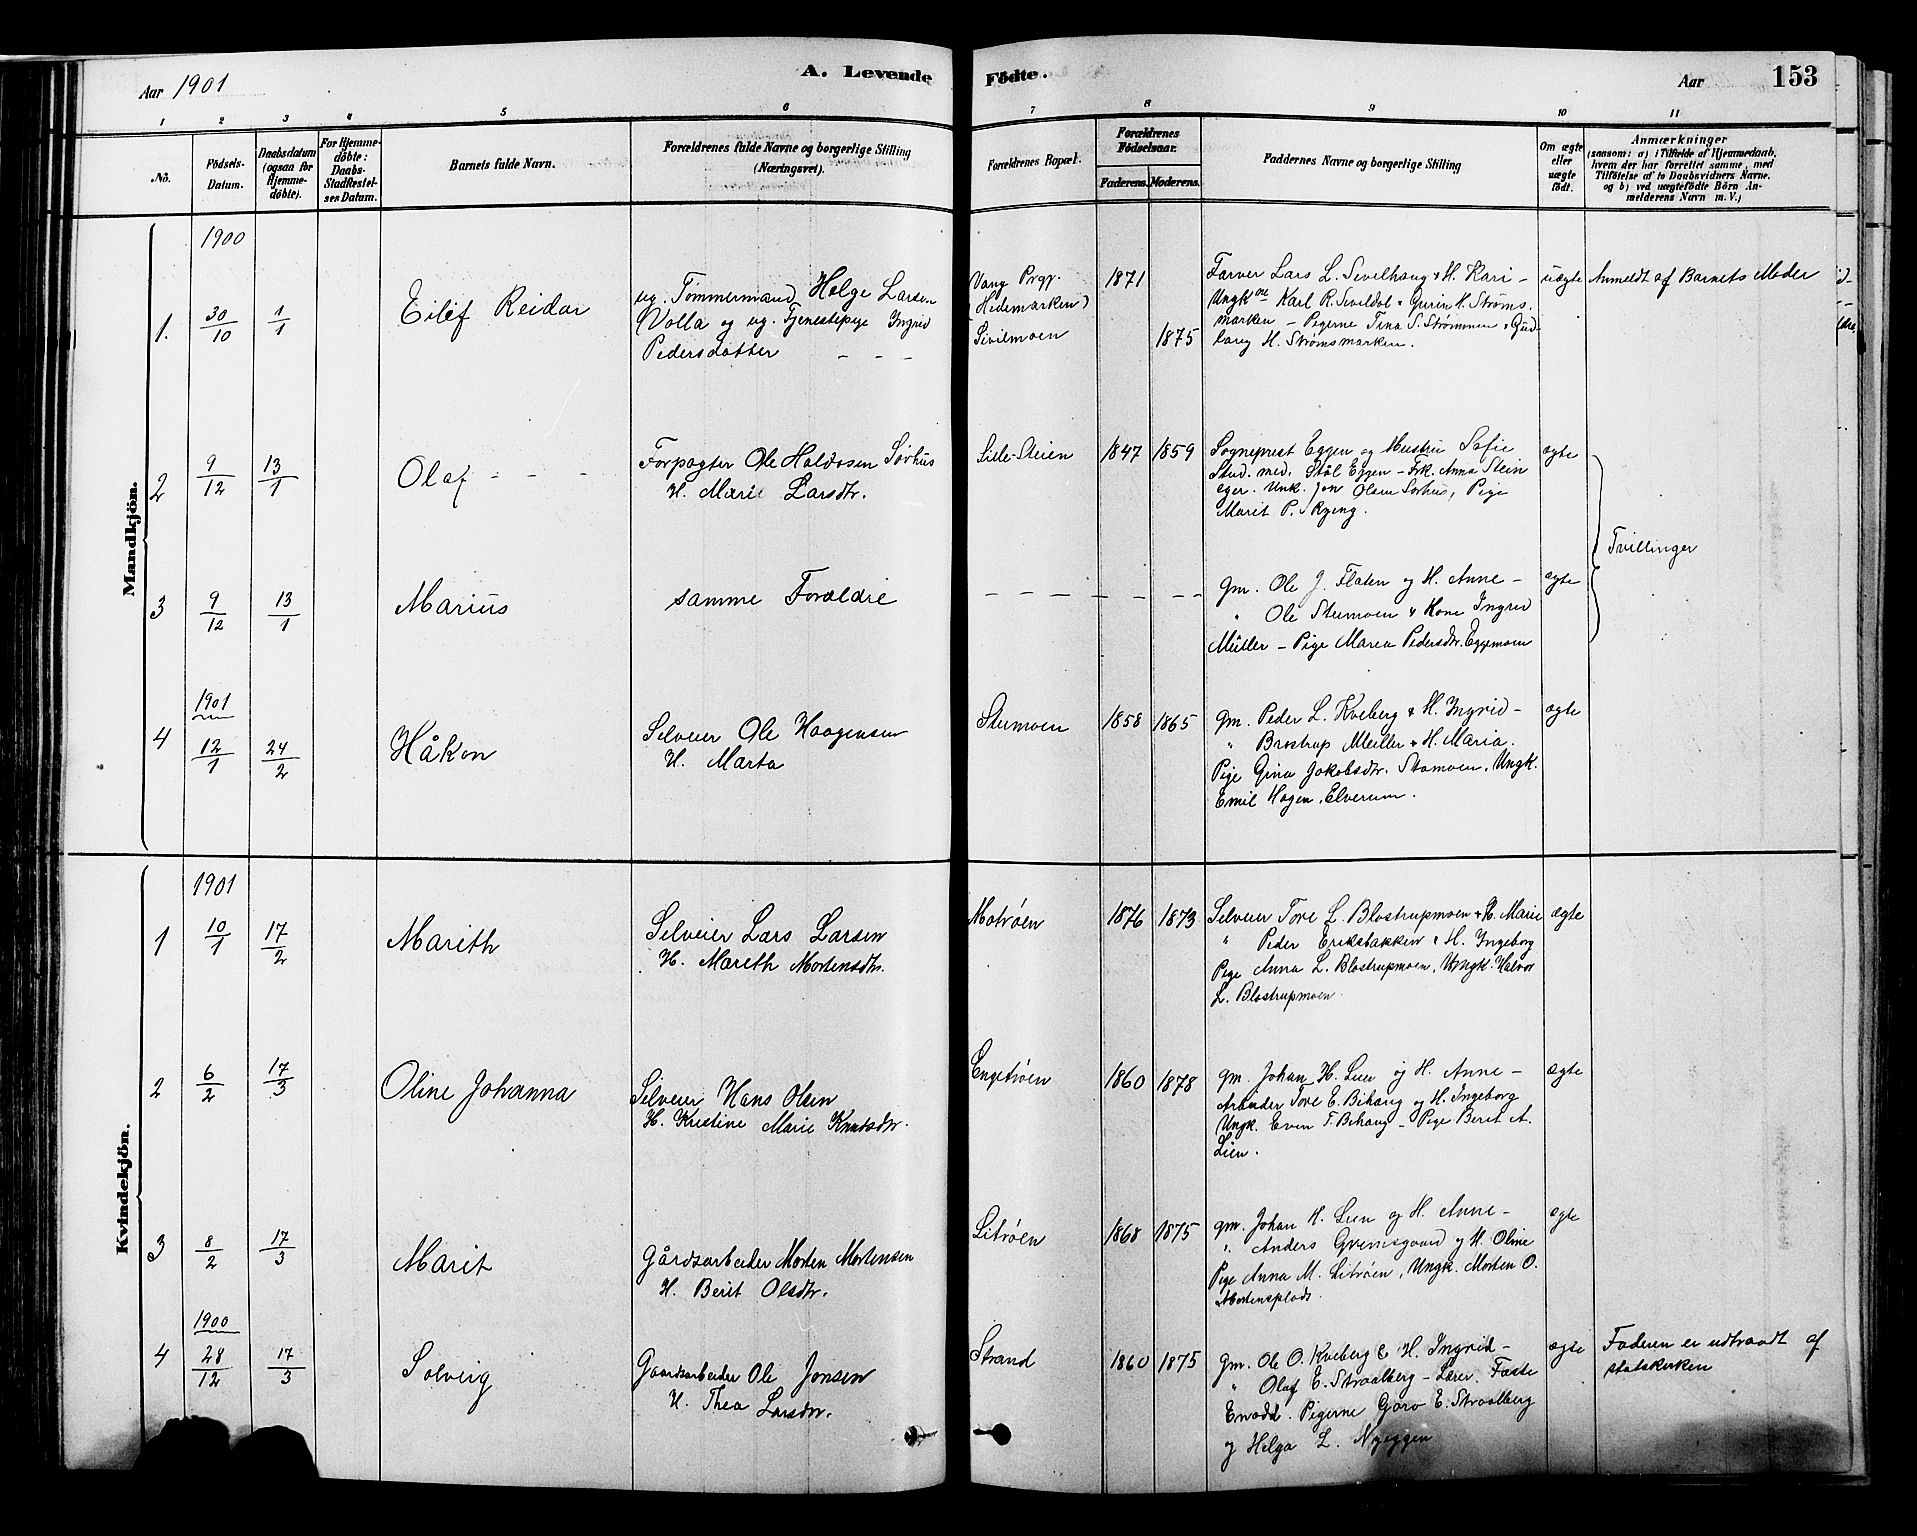 Aar 1901
A. Levende
Födte.
Aar
153
1 2 3 4 5 6 7 8 9 10 11
No.
Födsels-
Datum.
Daabsdatum
(ogsaa for
Hjemme-
døbte).
For Hjemme-
døbte:
Daabs-
Stadfæstel-
ses Datum.
Barnets fulde Navn.
Forældrenes fulde Navne og borgerlige Stilling
(Næringsvei).
Forældrenes Bopæl.
Forældrenes
Födselsaar.
Faderens. Moderens.
Faddernes Navne og borgerlige Stilling
Om ægte
eller
uægte
födt.
Anmærkninger
(saasom: a) i Tilfælde af Hjemmedaab,
hvem der har forrettet samme, med
Tilföielse af to Daabsvidners Navne,
og b) ved uægtefödte Börn An-
melderens Navn m. V.)
Mandkjön.
1900
1.
30/10
1/1
Eilif Reidar
ug. Tømmermand Helge Larsen
Volla og ug. Tjenestepige Ingrid
Pedersdatter - - -
Vang Prgj.
(Hedemarken)
Sivilmoen
1871
1875
Farver Lars L. Sivelhaug & H. Kari -
Ungkne Karl R. Siveldal & Gurin H. Strøms
marken - Pigerne Tina S. Strømmen & Gud
laug H. Strømsmarken.
uægte
Anmeldt af Barnets Moder
2
9/12
13/1
Olaf - - -
Forpagter Ole Haldosen Sørhus
H. Marie Larsdtr.
Lille-Steien
1847
1859
Sogneprest Eggen og Hustru Sofie
Stud. med. Ståle Eggen - Frk. Anna Stein
eger. Unk. Jon Olsen Sørhus, Pige
Marit P. Ryeng.
ægte
Tvillinger
3
9/12
13/1
Marius
samme Forældre
- - - - - - - - -
gm. Ole J. Flaten og H. Anne -
" Ole Stumoen & Kone Ingrid
Müller - Pige Maren Pedersdtr. Eggemoen
ægte
1901
4
12/1
24/2
Håkon
Selveier Ole Haagensen
H. Marta
Stumoen
1858
1865
gm. Peder L. Kveberg & H. Ingrid -
" Brostrup Müller & H. Maria.
Pige Gina Jakobsdtr. Stamoen, Ungk.
Emil Hagen, Elverum.
ægte
Kvindekjön.
1901
1
10/1
17/2
Marith
Selveier Lars Larsen
H. Mareth Mortensdtr.
Motrøen
1876
1873
Selveier Tore L. Blostrupmoen & H. Marie
" Peder Eriksbakken & H. Ingeborg
Pige Anna L. Blostrupmoen, Ungk. Halvor
L. Blostrupmoen.
ægte
2
6/2
17/3
Oline Johanna
Selveier Hans Olsen
H. Kristine Marie Knutsdtr.
Engetrøen
1860
1878
gm. Johan H. Lien og H. Anne -
Arbeider Tore E. Bihaug og H. Ingeborg
Ungk. Even T. Bihaug - Pige Berit A.
Lien.
ægte
3
8/2
17/3
Marit
Gårdsarbeider Morten Mortensen
H. Berit Olsdtr.
Litrøen
1868
1875
gm. Johan H. Lien og H. Anne -
" Anders Gremsgaard og H. Oline
Pige Anna M. Litrøen, Ungk. Morten O.
Mortensplads.
ægte
1900
4
28/12
17/3
Solveig
Gaardsarbeider Ole Jonsen
H. Thea Larsdtr.
Strand
1860
1875
gm. Ole O. Kveberg & H. Ingrid -
" Olaf E. Straalberg - Lærer. Fæste
Enodd. Pigerne Goro E. Straalberg
og Helga L. Nyeggen
ægte
Faderen er udtraadt af
statskirken